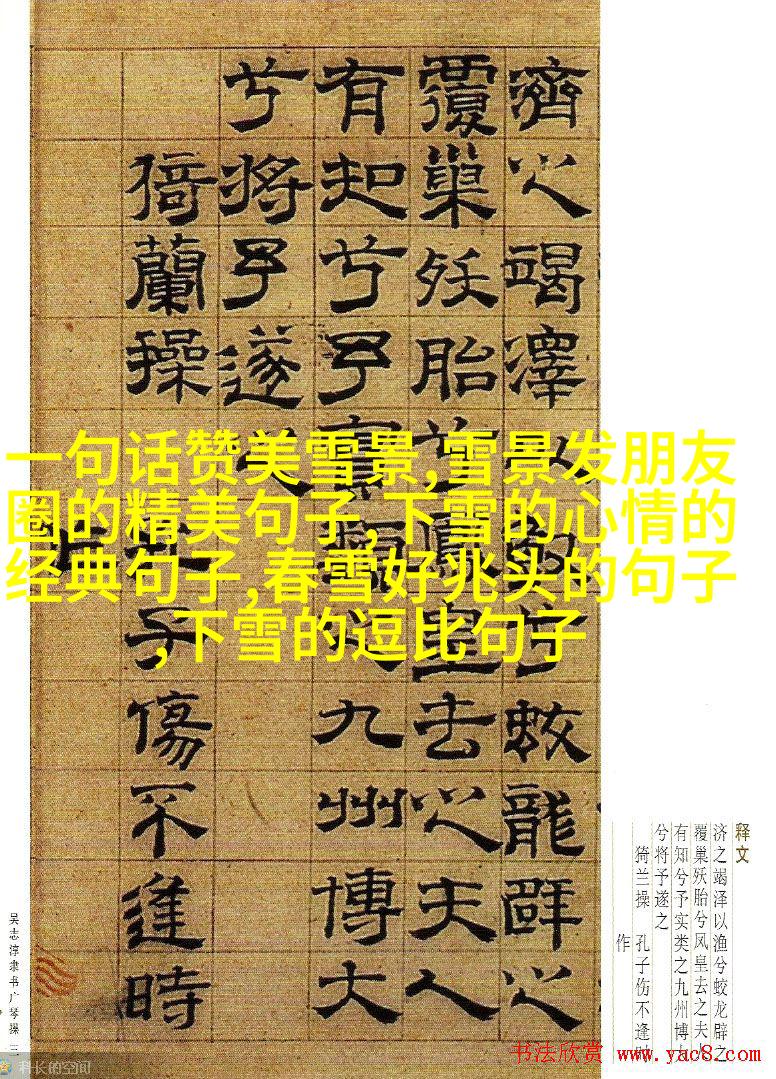 濟之竭澤以兮蛟龍辟之
覆巢殀胎兮鳳皇去之夫人
有知兮予實類之九州博大
兮將予遂之
猗蘭操 孔子傷不逢時
一句话赞美雪景,雪景发朋友
圈的精美句子,下雪的心情的
经典句子,春雪好兆头的句子
,下雪的逗比句子
释文
济之竭泽以渔兮蛟龙辟之
覆巢殀胎兮凤皇去之夫
有知兮予实类之九州博
兮将予遂之
猗兰操 孔子伤不逢时
作
吴志淳隶书广琴操 三
科长的空间
书法欣赏 www.yac8.com